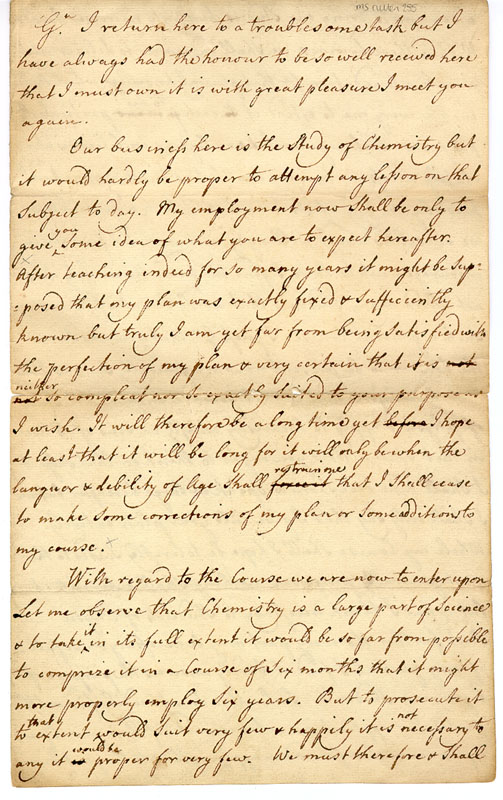 MS Cullen 255
Gn. I return here to a troublesome task but I
have always had the honour to be so well received here
that I must own it is with great pleasure I meet you
again.
Our business here is the Study of Chemistry but
it would hardly be proper to attempt any lesson on that
Subject to day. My employment now Shall be only to
give you Some idea of what you are to expect hereafter.
After teaching indeed for so many years it might be Sup-
-posed that my plan was exactly fixed & Sufficiently
known but truly I am yet far from being Satisfied with
the perfection of my plan & very certain that it is not
neither so compleat nor so exactly Suited to your purpose as
I wish. It will therefore be a long time yet before I hope
at least that it will be long for it will only be when the
languor & debility of Age Shall forces it restrain me that I Shall cease
to make Some corrections of my plan or Some additions to
my course.
With regard to the Course we are now to enter upon
Let me observe that Chemistry is a large part of Science
& to take it in its full extent it would be so far from possible
to comprize it in a Course of Six months that it might
more properly employ Six years. But to prosecute it
to that extent would Suit very few & happily it is not necessary to
any it is would be proper for very few. We must therefore & Shall